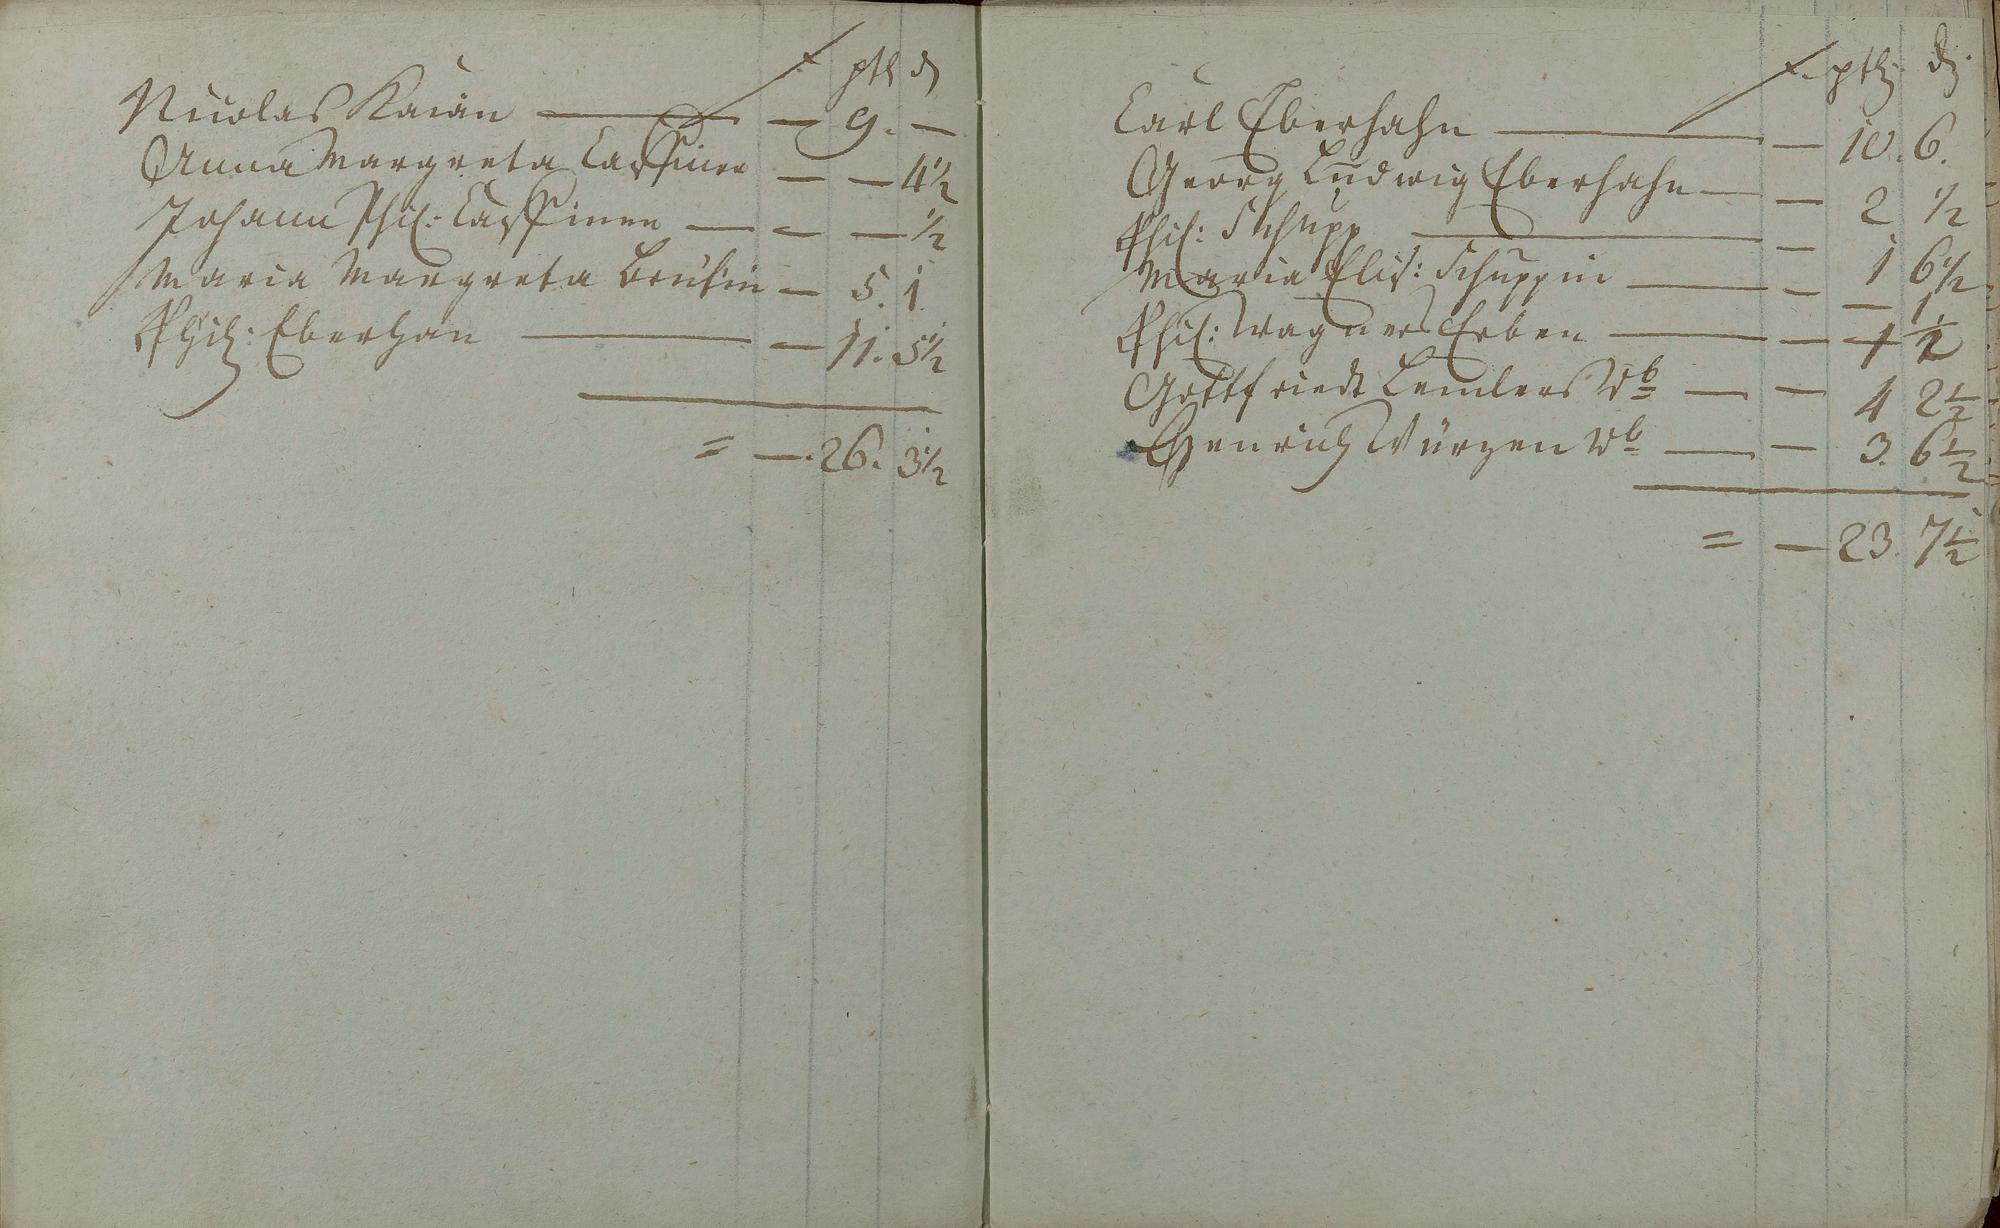 f ptl ₰
Nicolas Kaian — — 9. —
Anna Margreta — — 4½
Johann Phil: — — ½
Maria Margreta — 5. 1.
Phil: Eberhan — — 11. 5½
= — 26. 3½
f. ptl ₰.
Carl Eberhahn — — 10. 6.
Georg Ludwig Eberhahn — — 2 ½
Phil: Schupp — — 1 6½
Maria Elis: Schuppin — — — 1
Phil: Wagners Erben — — 1 ½
Gottfriedt Lemlers Wb — — 4 2½
Henrich Würzen Wb — — 3. 6½
= — 23. 7½